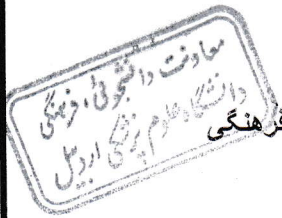 معاونت دانشجوئی، فرهنگی
دانشگاه علوم پزشکی اردبیل
فرهنگی